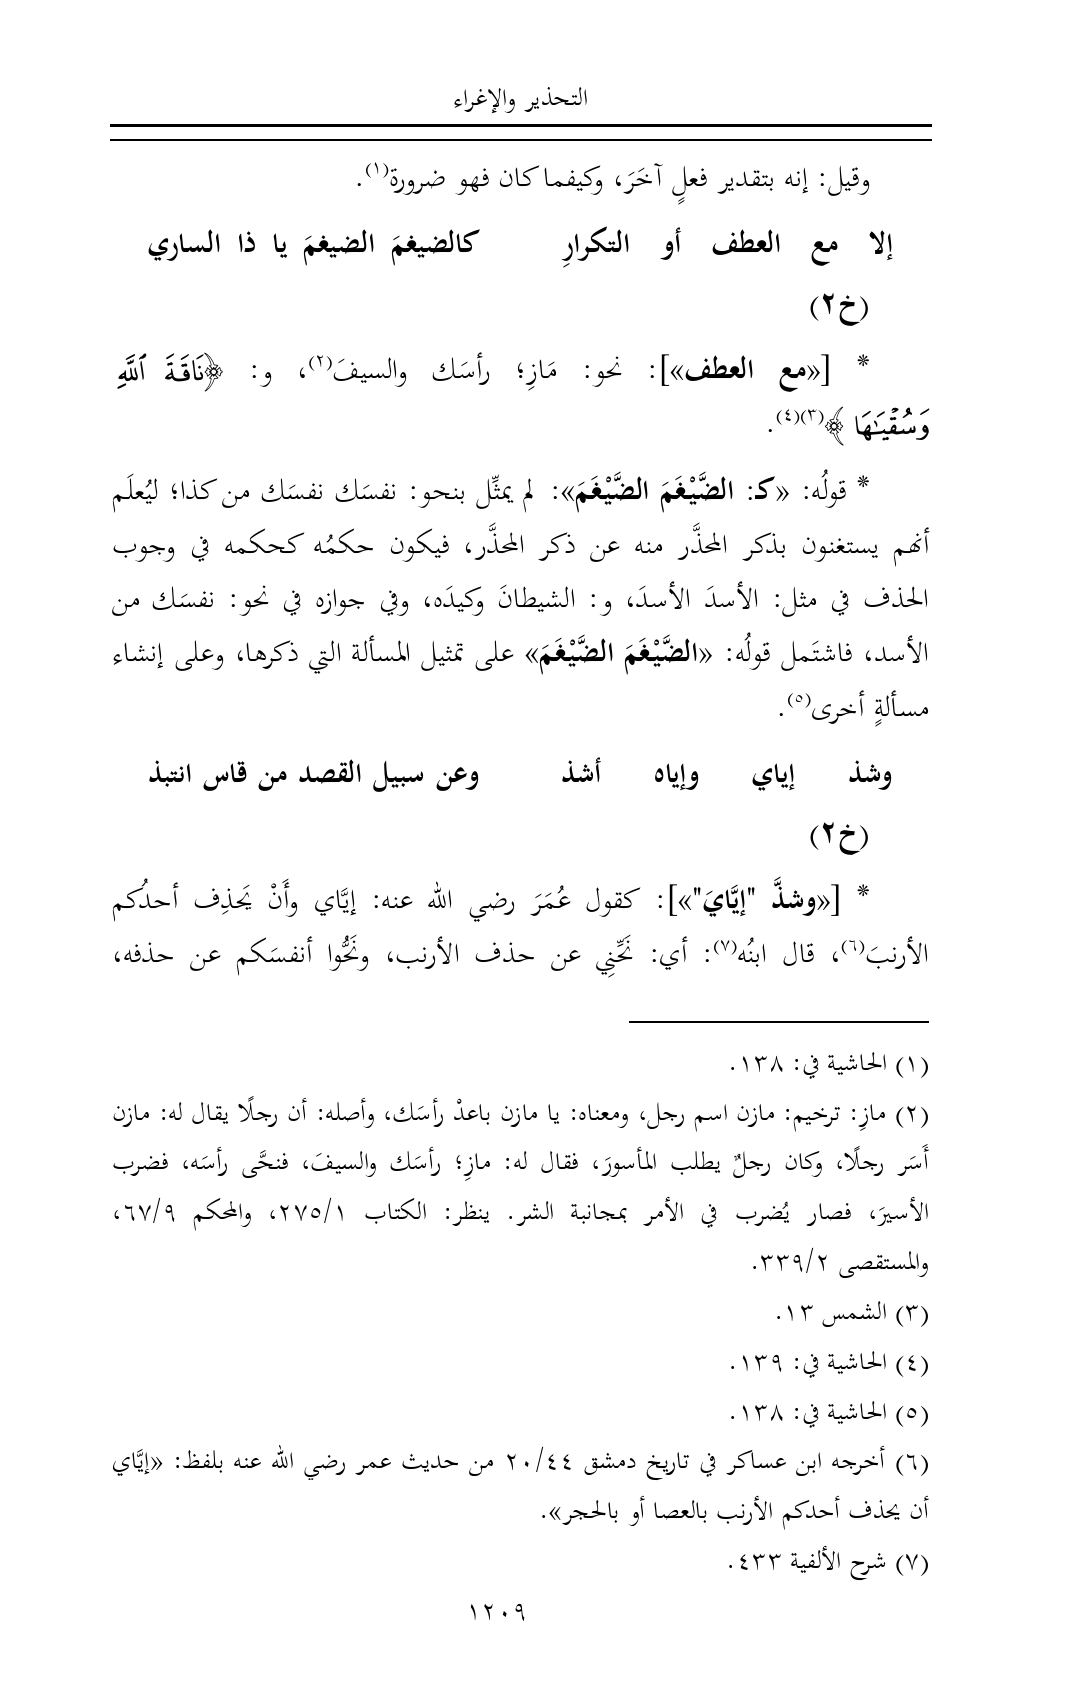 التحذير والإغراء
وقيل: إنه بتقدير فعلٍ آخَرَ، وكيفما كان فهو ضرورة(١).
إلا مع العطف أو التكرارِ كالضيغمَ الضيغمَ يا ذا الساري
(خ٢)
* [«مع العطف»]: نحو: مَازِ؛ رأسَك والسيفَ(٢)، و: ﴿نَاقَةَ ٱللَّهِ
وَسُقْيَـٰهَا﴾(٣)(٤).
* قولُه: «كـ: الضَّيْغَمَ الضَّيْغَمَ»: لم يمثِّل بنحو: نفسَك نفسَك من كذا؛ ليُعلَم
أنهم يستغنون بذكر المحذَّر منه عن ذكر المحذَّر، فيكون حكمُه كحكمه في وجوب
الحذف في مثل: الأسدَ الأسدَ، و: الشيطانَ وكيدَه، وفي جوازه في نحو: نفسَك من
الأسد، فاشتَمل قولُه: «الضَّيْغَمَ الضَّيْغَمَ» على تمثيل المسألة التي ذكرها، وعلى إنشاء
مسألةٍ أخرى(٥).
وشذ إياي وإياه أشذ وعن سبيل القصد من قاس انتبذ
(خ٢)
* [«وشذَّ "إيَّايَ"»]: كقول عُمَرَ رضي الله عنه: إيَّاي وأَنْ يَحذِف أحدُكم
الأرنبَ(٦)، قال ابنُه(٧): أي: نَحِّنِي عن حذف الأرنب، ونَحُّوا أنفسَكم عن حذفه،
(١) الحاشية في: ١٣٨.
(٢) مازِ: ترخيم: مازن اسم رجل، ومعناه: يا مازن باعدْ رأسَك، وأصله: أن رجلًا يقال له: مازن
أَسَر رجلًا، وكان رجلٌ يطلب المأسورَ، فقال له: مازِ؛ رأسَك والسيفَ، فنحَّى رأسَه، فضرب
الأسيرَ، فصار يُضرب في الأمر بمجانبة الشر. ينظر: الكتاب ٢٧٥/١، والمحكم ٦٧/٩،
والمستقصى ٣٣٩/٢.
(٣) الشمس ١٣.
(٤) الحاشية في: ١٣٩.
(٥) الحاشية في: ١٣٨.
(٦) أخرجه ابن عساكر في تاريخ دمشق ٢٠/٤٤ من حديث عمر رضي الله عنه بلفظ: «إيَّاي
أن يحذف أحدكم الأرنب بالعصا أو بالحجر».
(٧) شرح الألفية ٤٣٣.
١٢٠٩